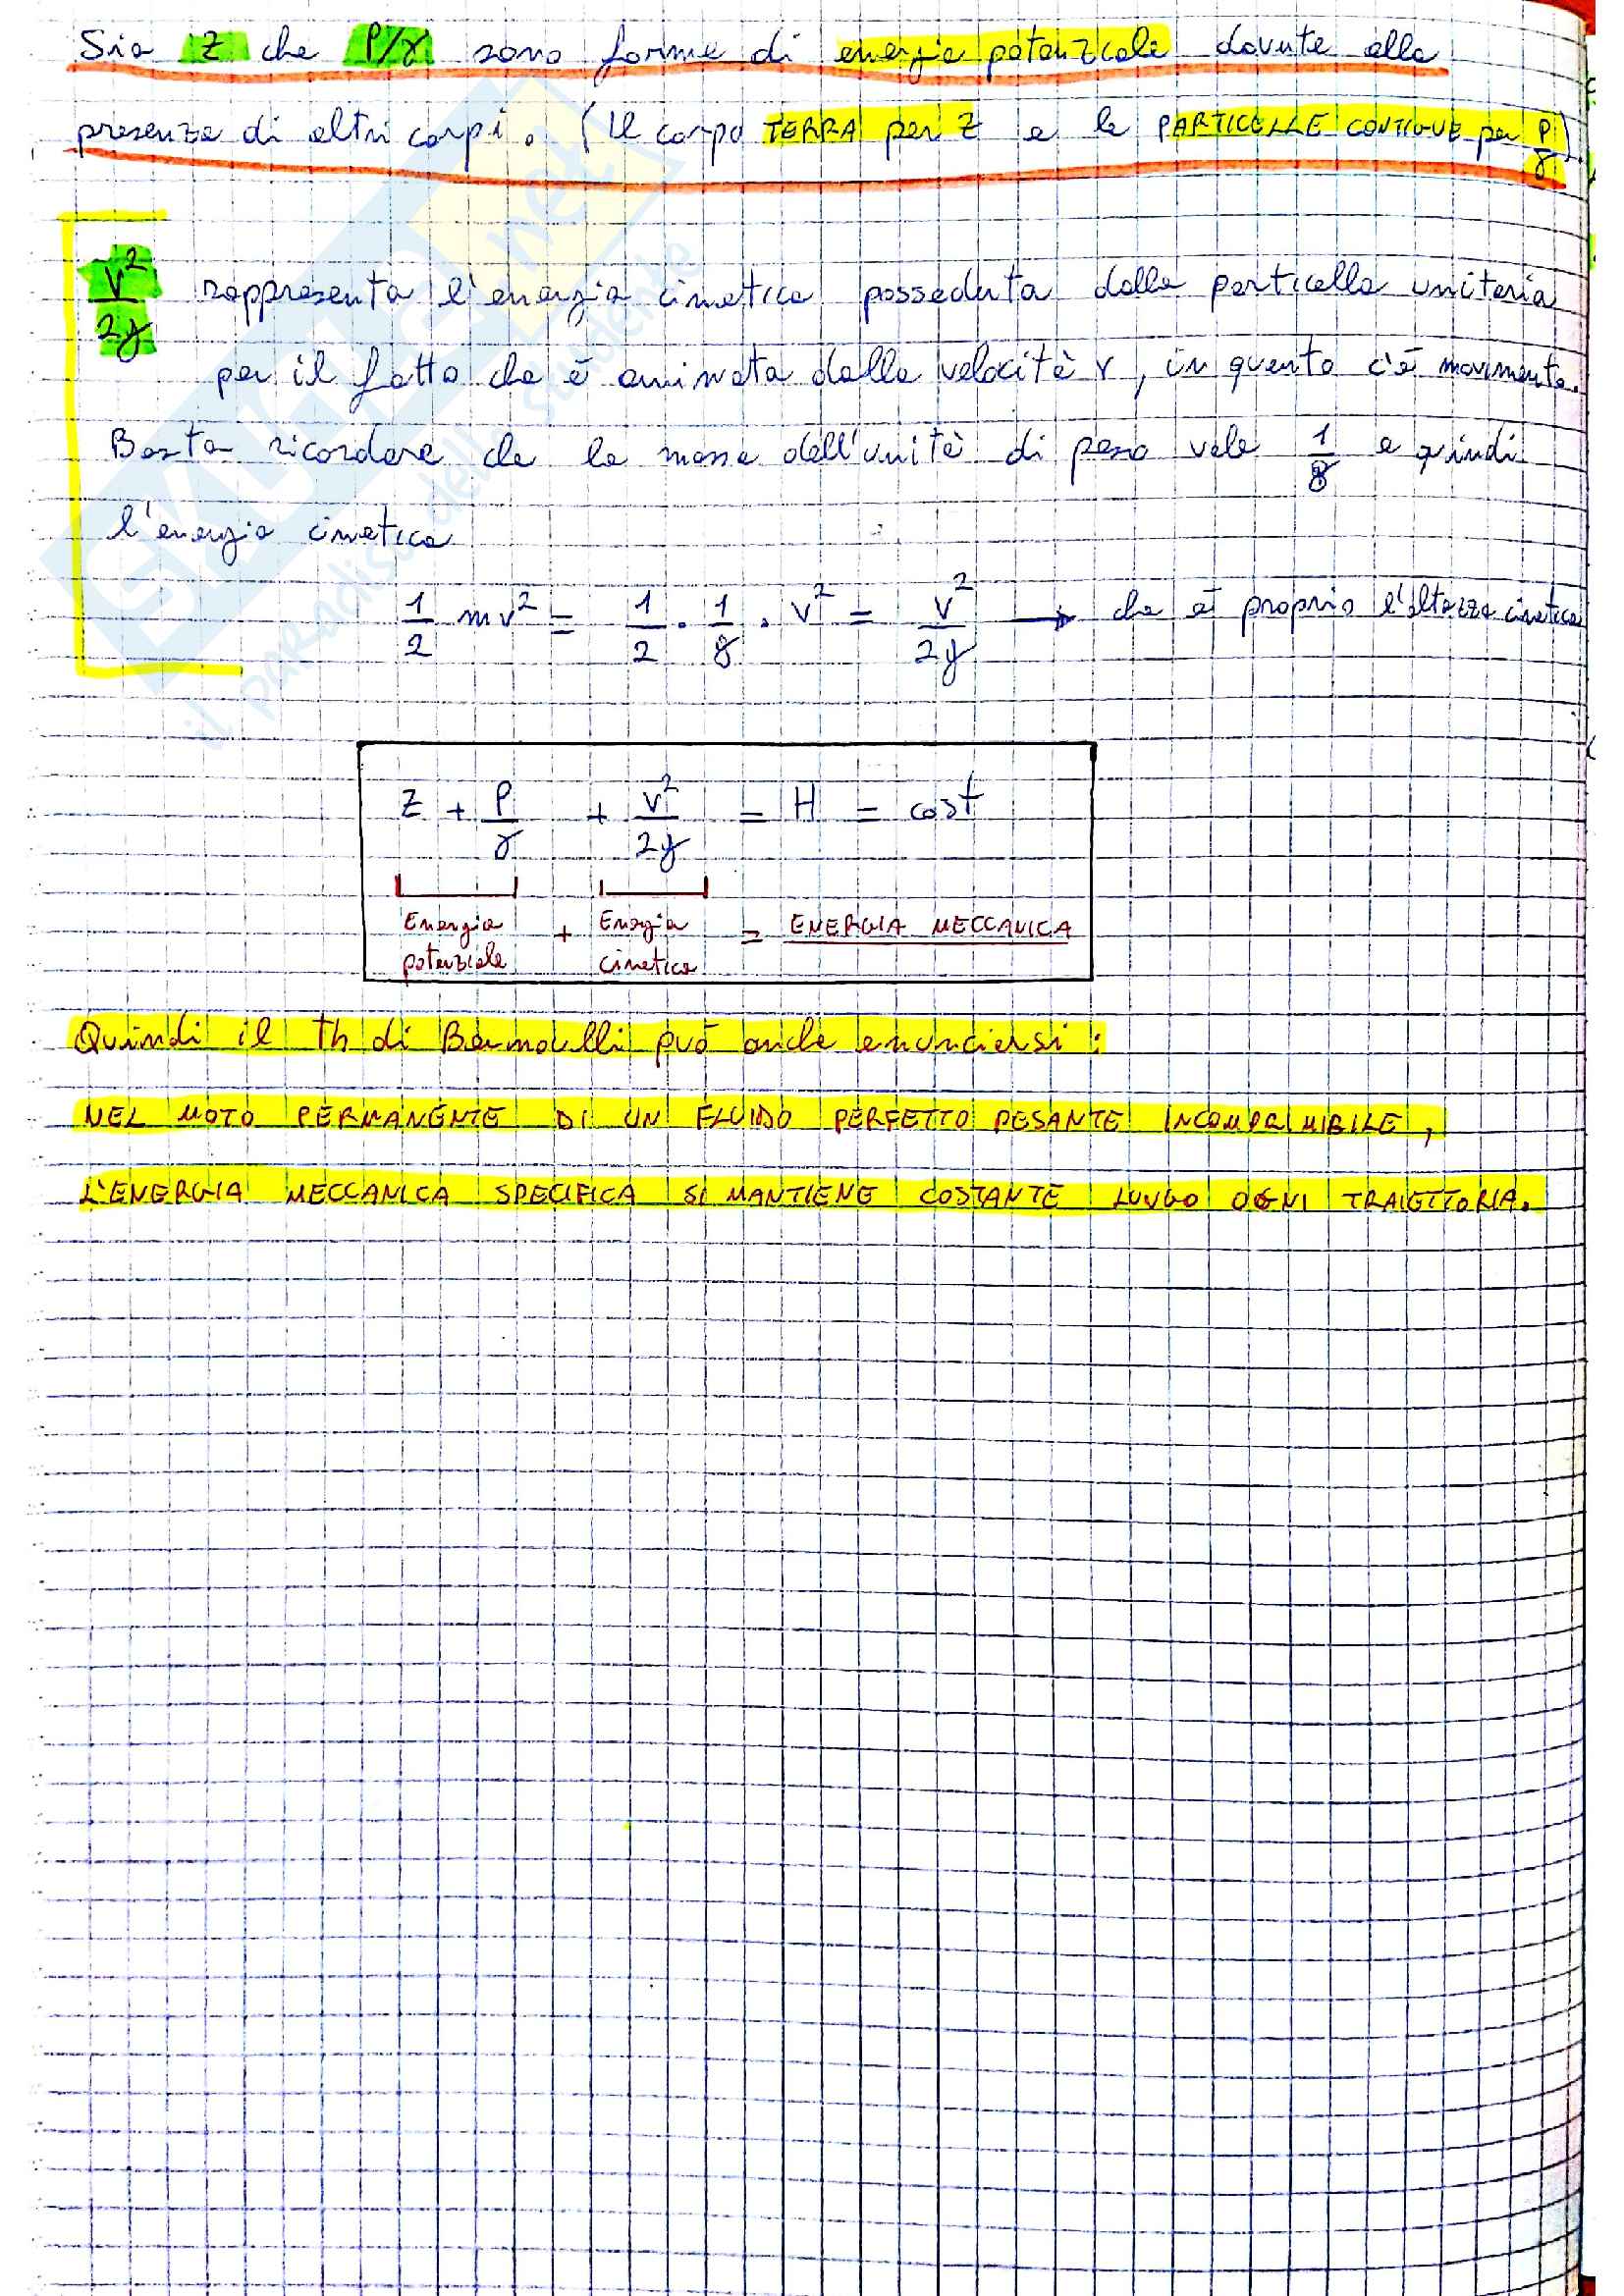 Sia Z che P/γ sono forme di energia potenziale dovute alla
presenza di altri corpi. (Il corpo TERRA per Z e le PARTICELLE CONTIGUE per P/γ)
v²/2g rappresenta l'energia cinetica posseduta dalla particella unitaria
per il fatto che è animata dalla velocità v, in quanto c'è movimento.
Basta ricordare che la massa dell'unità di peso vale 1/g e quindi
l'energia cinetica
1/2 mv² = 1/2 · 1/g · v² = v²/2g → che è proprio l'altezza cinetica
Z + P/γ + v²/2g = H = cost
Energia potenziale + Energia cinetica = ENERGIA MECCANICA
Quindi il th di Bernoulli può anche enunciarsi:
NEL MOTO PERMANENTE DI UN FLUIDO PERFETTO PESANTE INCOMPRIMIBILE,
L'ENERGIA MECCANICA SPECIFICA SI MANTIENE COSTANTE LUNGO OGNI TRAIETTORIA.
SKUOLA.net
il paradiso dello studente